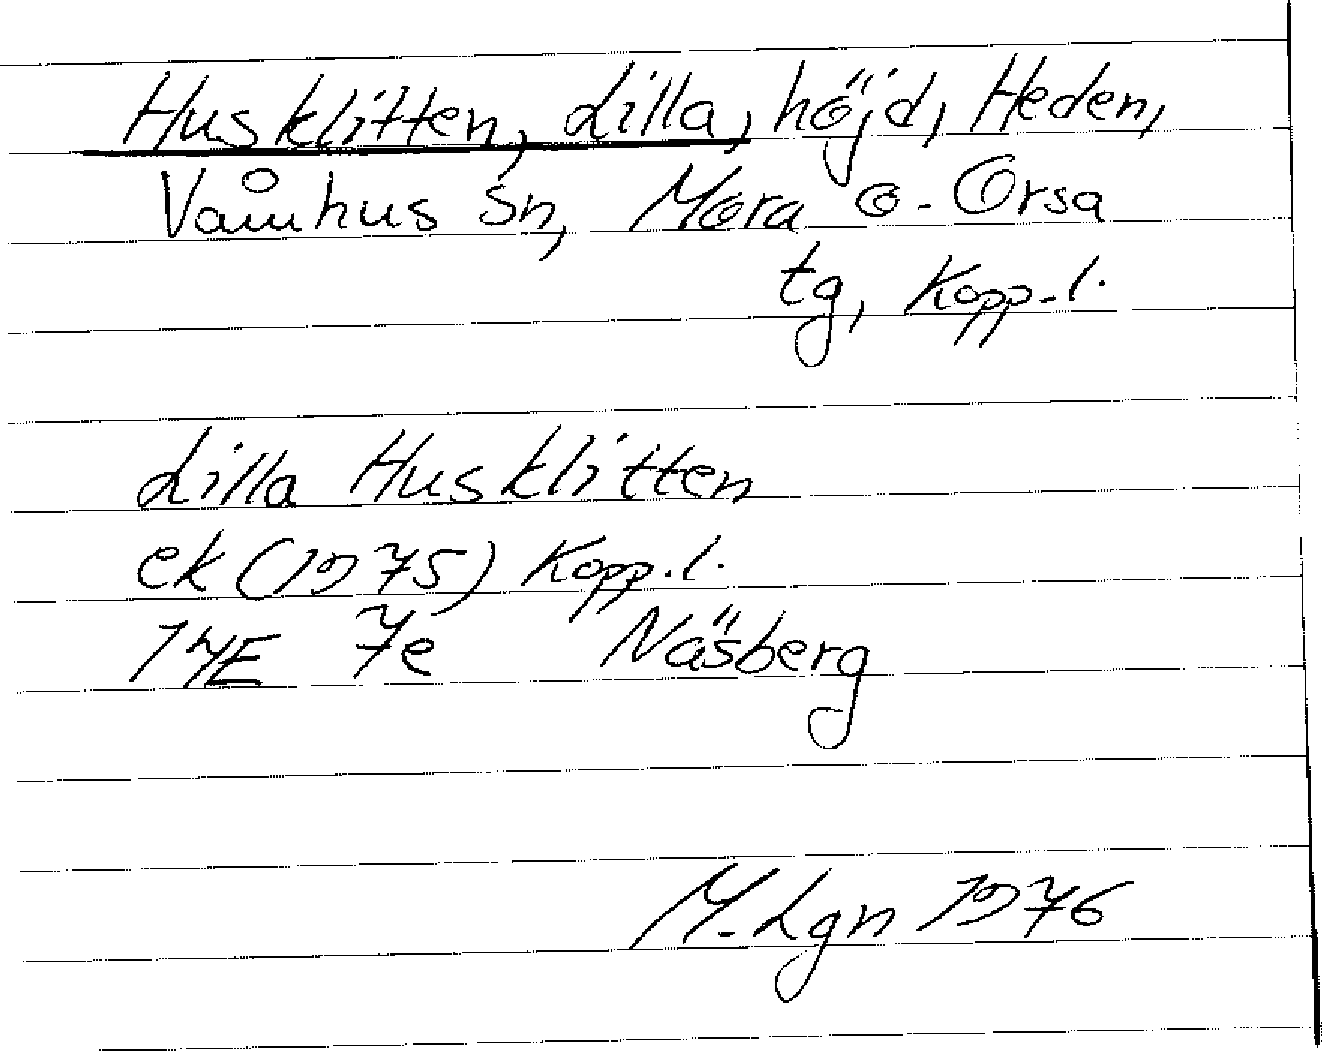 Husklitten, Lilla, höjd, Heden,
Våmhus sn, Mora o. Orsa
tg, Kopp.l.
Lilla Husklitten
ek (1975) Kopp.l.
14E 7e Näsberg
M.Lgn 1976